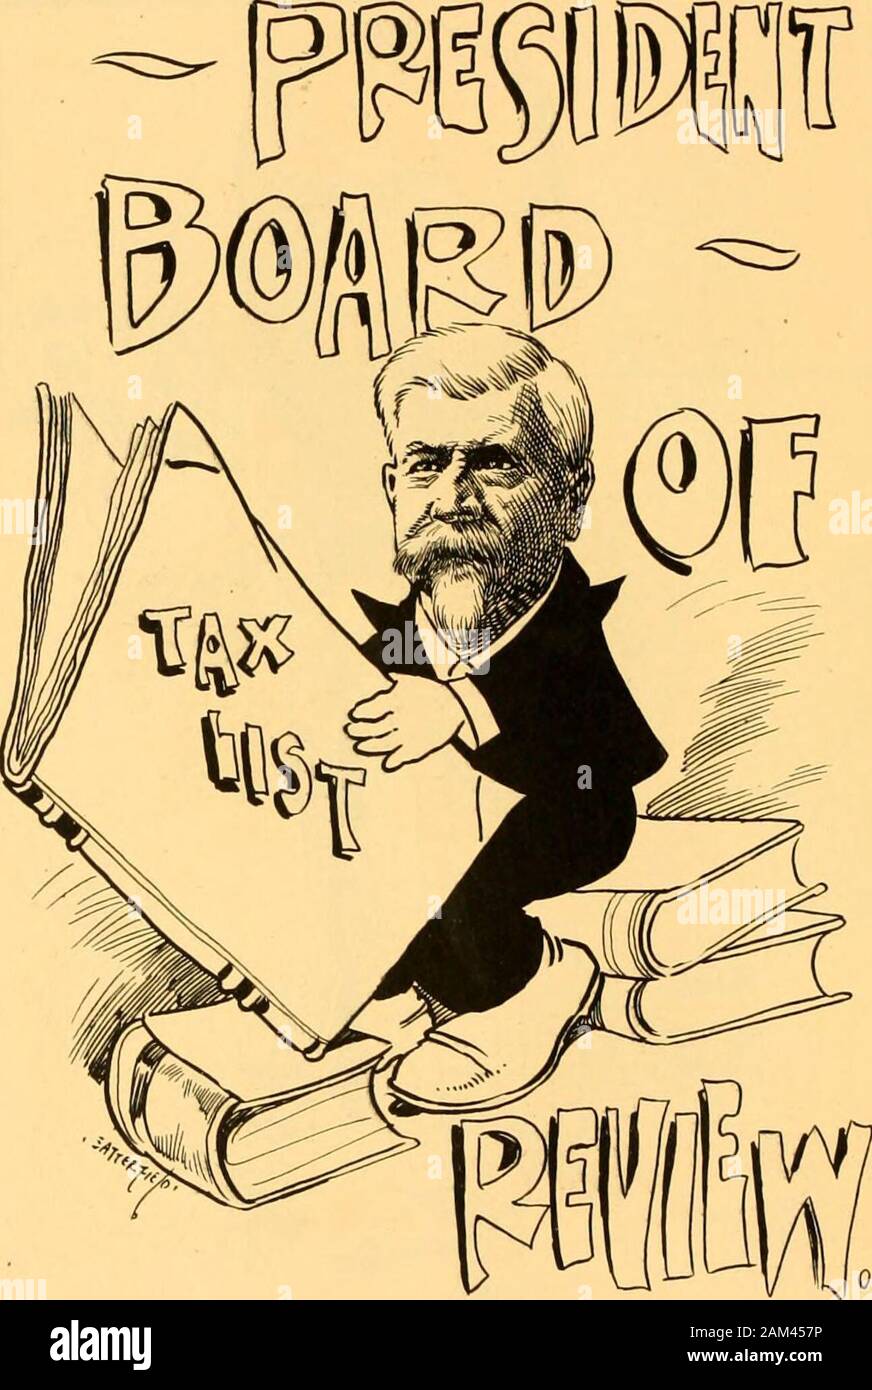 PRESIDENT
BOARD
OF
TAX
LIST
SATTERFIELD.
REVIEW
alamy
Image ID: 2AM457P
www.alamy.com